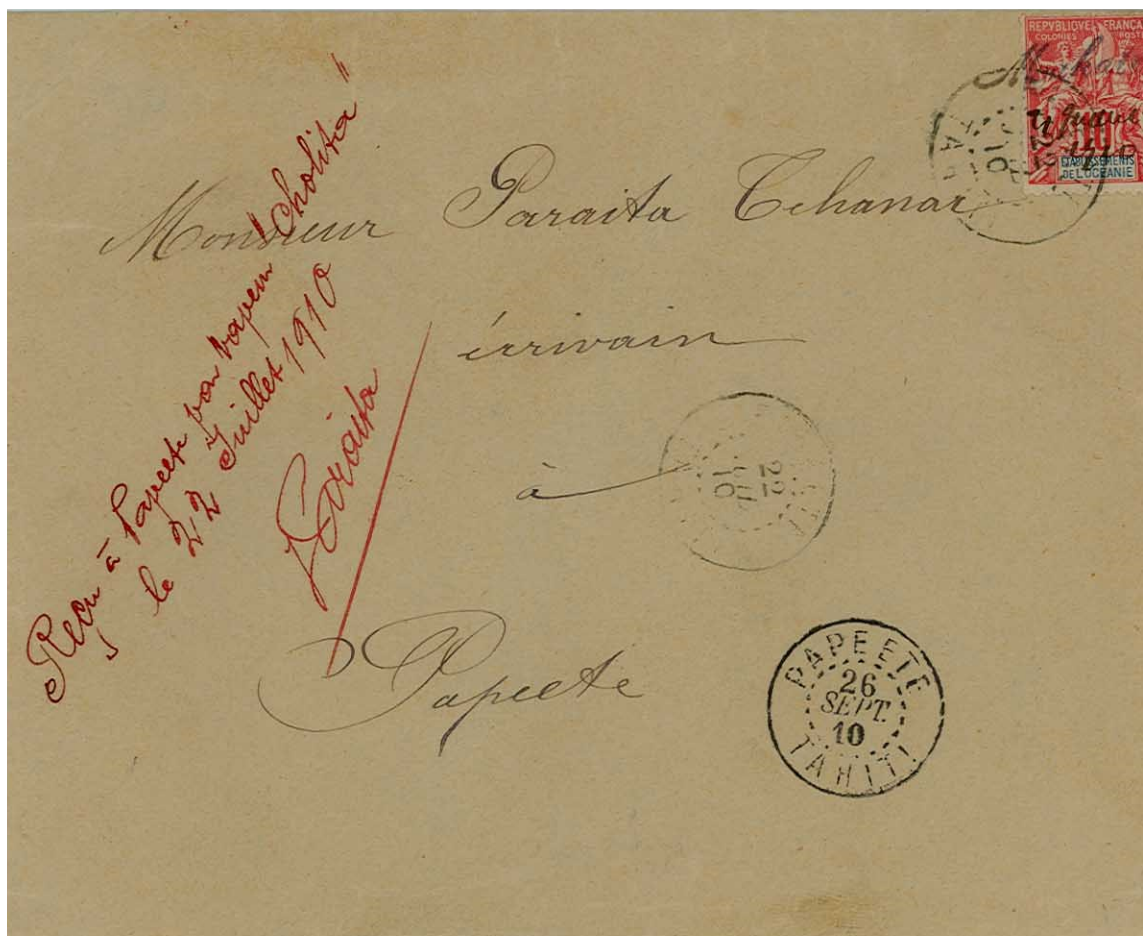 REPVBLIQVE FRANÇA
COLONIES POST
10
ETABLISSEMENTS
DE L'OCEANIE
Monsieur Paraita Tehanar
écrivain
à
Papeete
Reçu à Papeete par vapeur "Cholita"
le 22 Juillet 1910
Paraita
22
10
PAPEETE
26
SEPT.
10
TAHITI